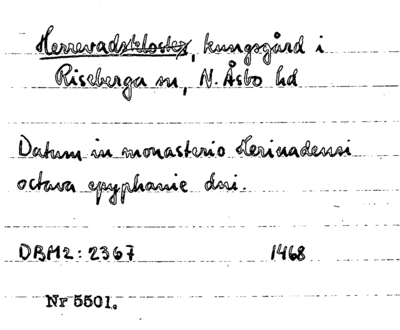 Herrevadskloster, kungsgård i
Riseberga sn, N. Åsbo hd
Datum in monasterio Herivadensi
octava epyphanie dni.
DBM2: 2367 1468
Nr 5501.